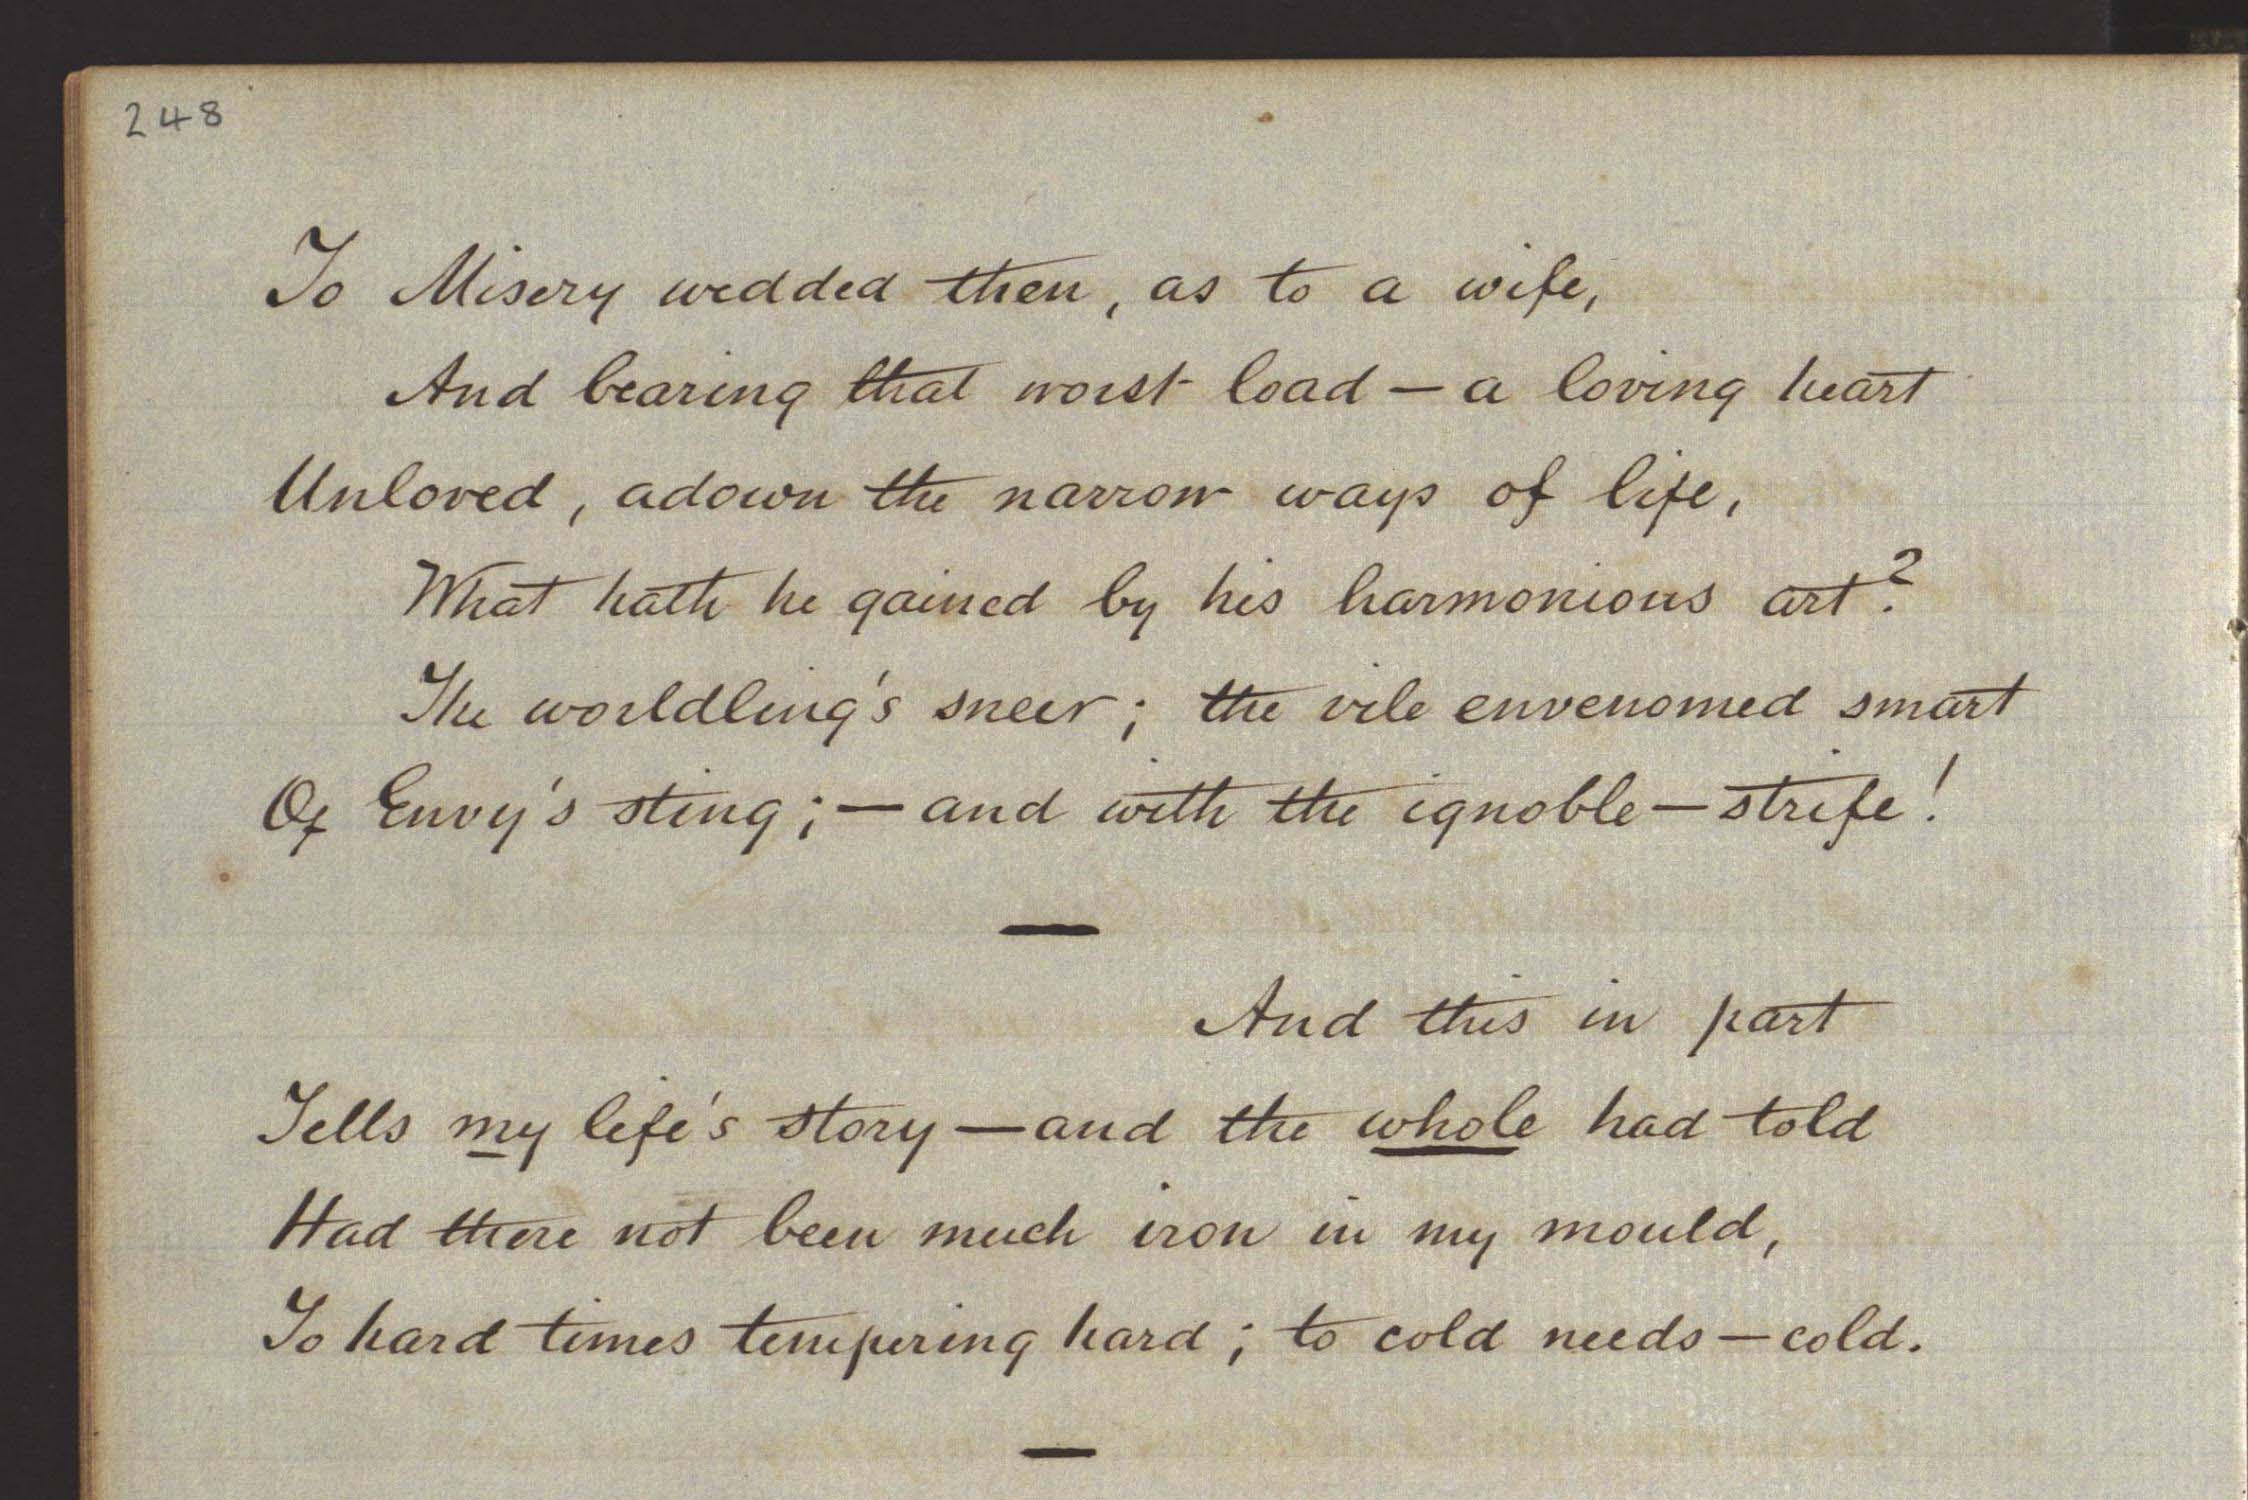 248
To Misery wedded then, as to a wife,
And bearing that worst load — a loving heart
Unloved, adown the narrow ways of life,
What hath he gained by his harmonious art?
The worldling's sneer; the vile envenomed smart
Of Envy's sting; — and with the ignoble — strife!
And this in part
Tells my life's story — and the whole had told
Had there not been much iron in my mould,
To hard times tempering hard; to cold needs — cold.